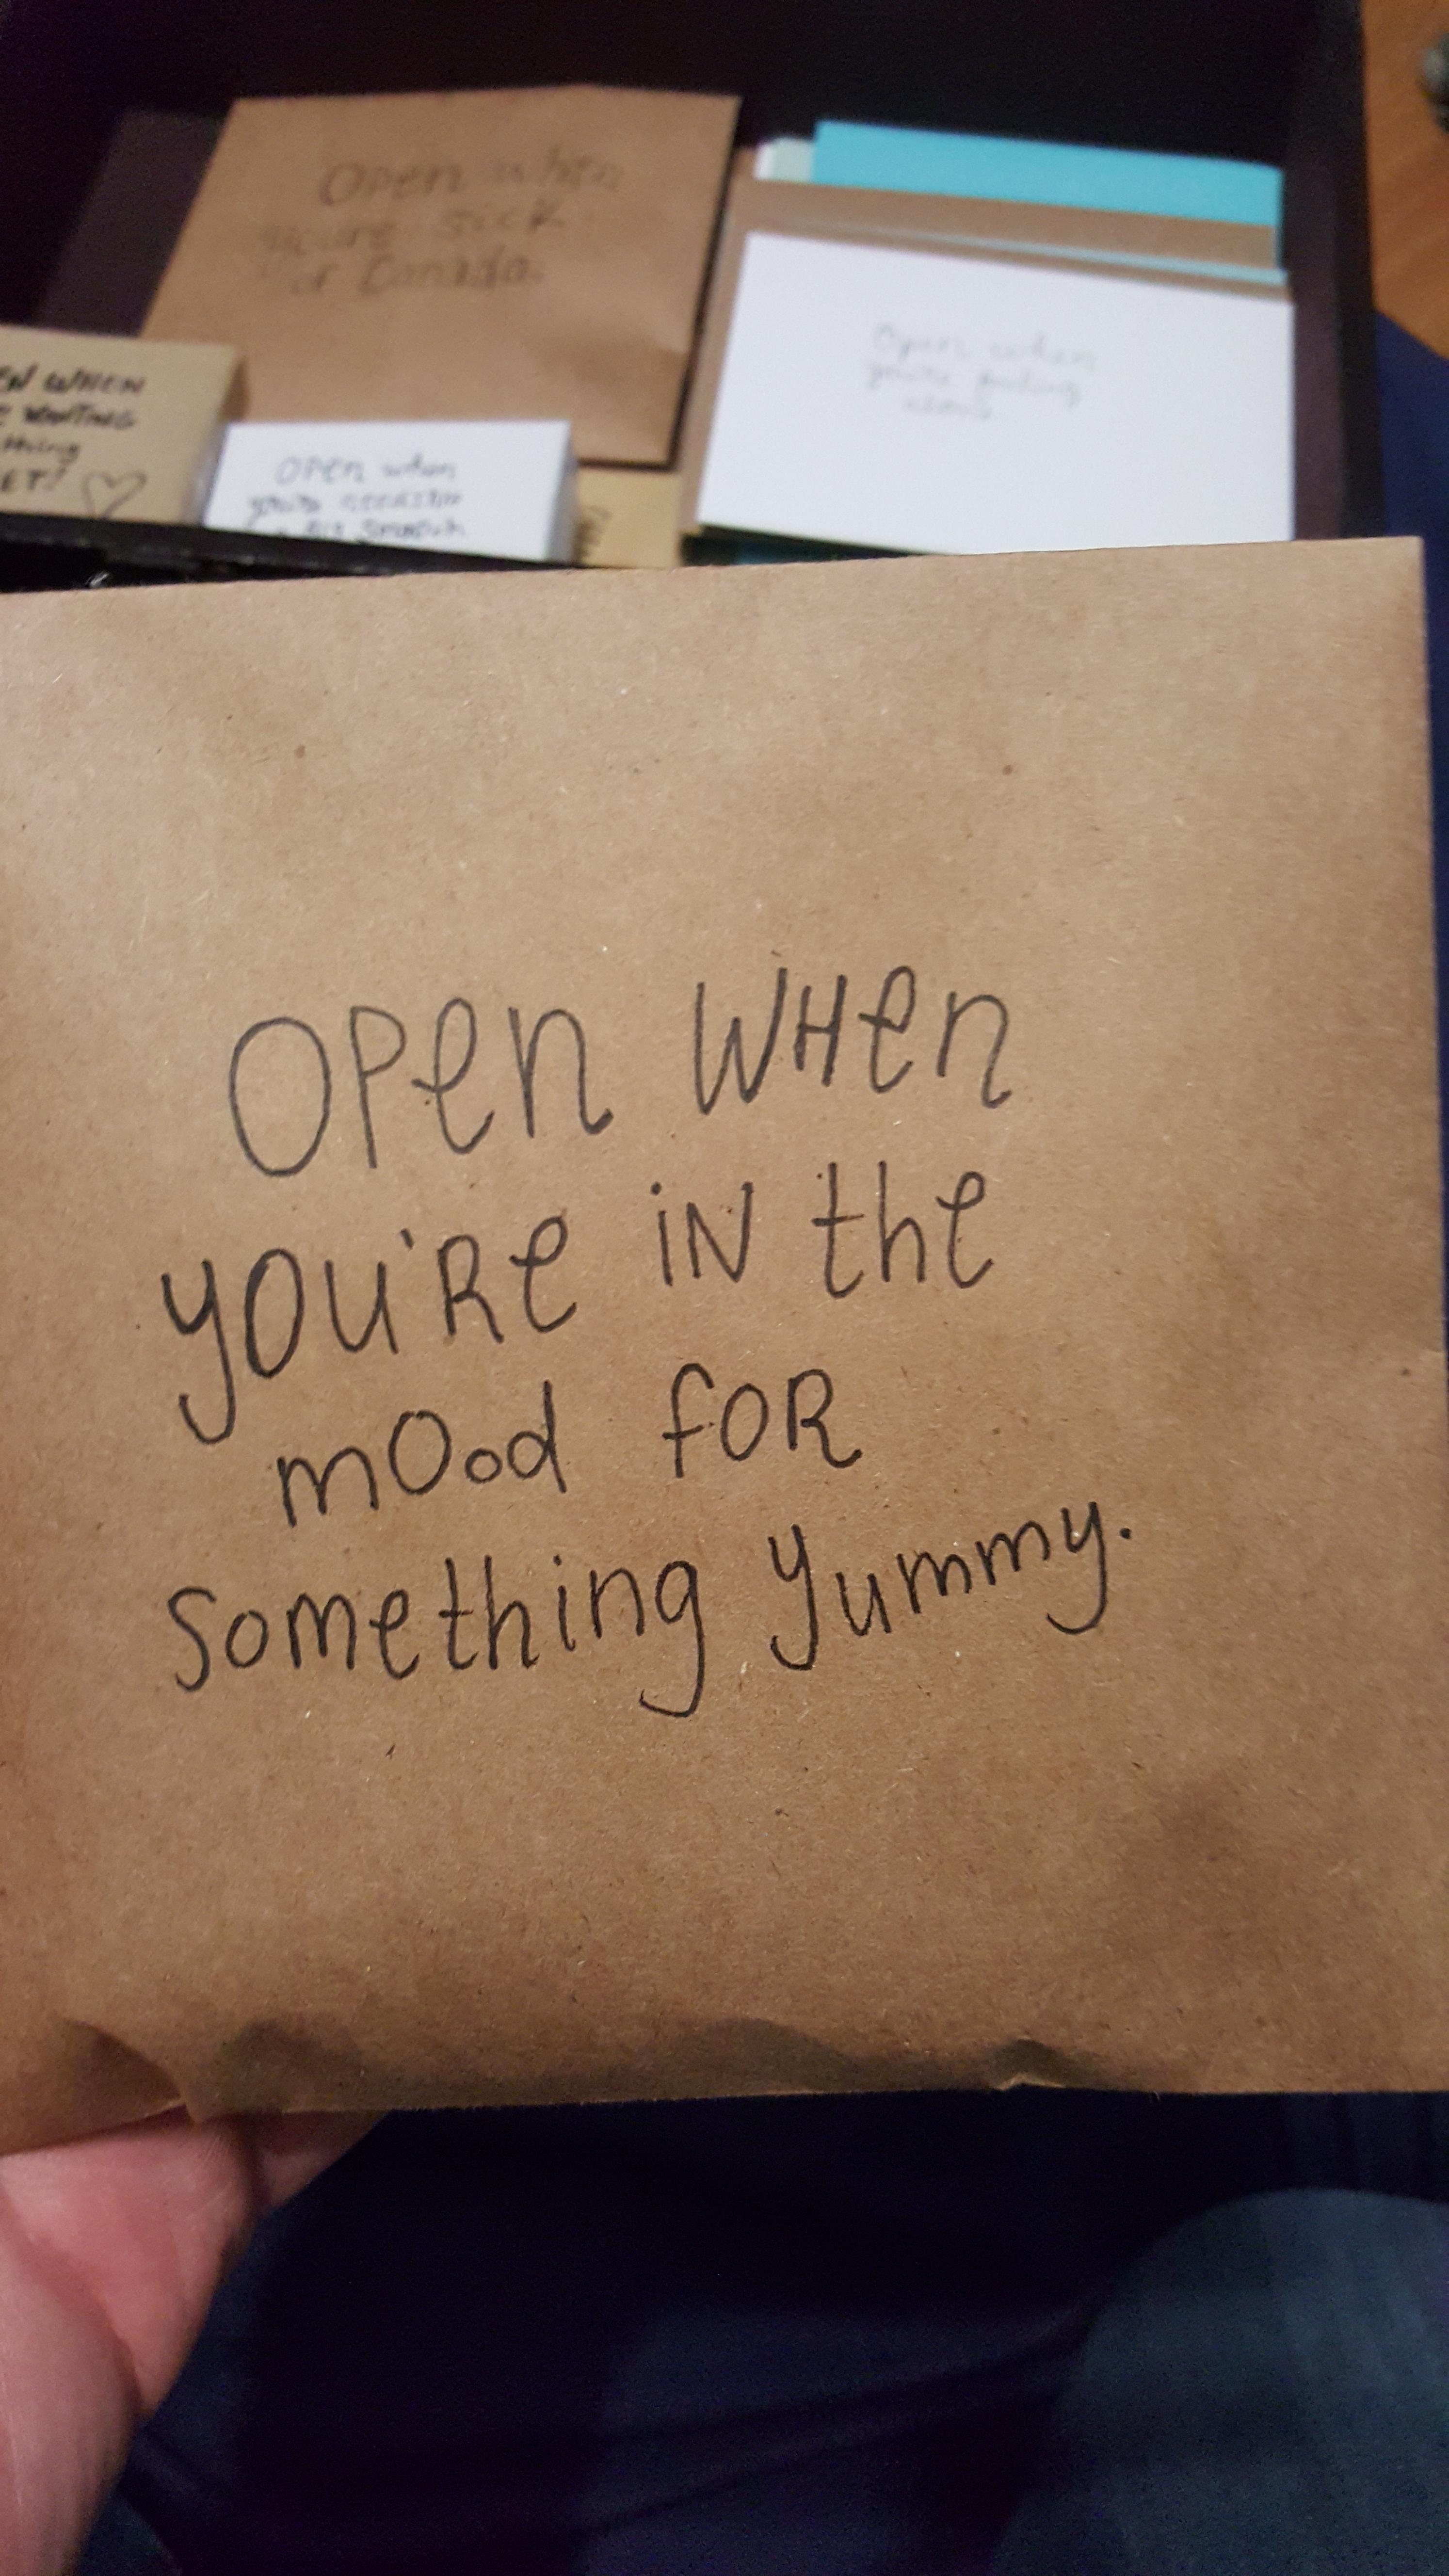 Open when
you're sick
of Canada.
EN WHEN
E WANTING
thing
ET!
Open when
you're feeling
Open when
you're
OPen WHen
yOu'Re iN the
mOod fOR
Something yummy.